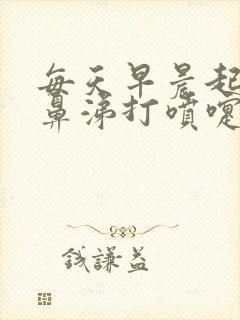 每天早晨起
鼻涕打噴嚏
錢謙益